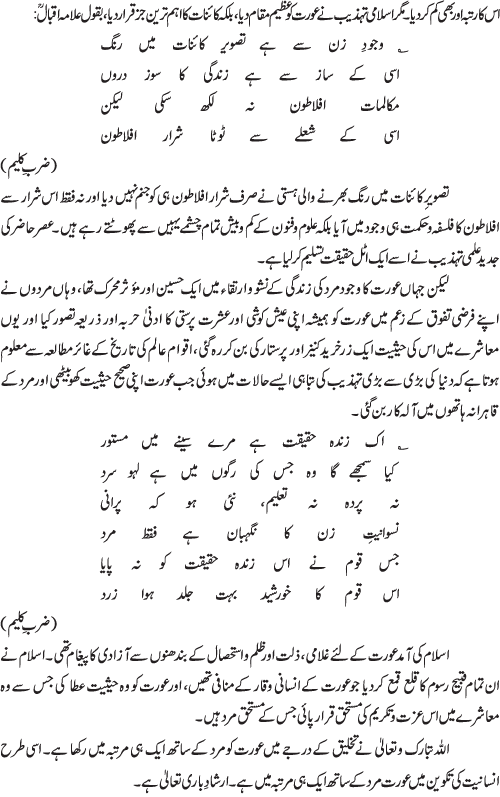 اس کا رتبہ اور بھی کم کر دیا۔ مگر اسلامی تہذیب نے عورت کو عظیم مقام دیا، بلکہ کائنات کا اہم ترین جز قرار دیا، بقول علامہ اقبالؒ:
وجودِ زن سے ہے تصویرِ کائنات میں رنگ
اسی کے ساز سے ہے زندگی کا سوز دروں
مکالمات افلاطون نہ لکھ سکی لیکن
اسی کے شعلے سے ٹوٹا شرار افلاطون
(ضربِ کلیم)
تصویرِ کائنات میں رنگ بھرنے والی ہستی نے صرف شرار افلاطون ہی کو جنم نہیں دیا اور نہ فقط اس شرار سے
افلاطون کا فلسفہ و حکمت ہی وجود میں آیا بلکہ علوم و فنون کے کم و بیش تمام چشمے یہیں سے پھوٹتے رہے ہیں۔ عصر حاضر کی
جدید علمی تہذیب نے اسے ایک اٹل حقیقت تسلیم کر لیا ہے۔
لیکن جہاں عورت کا وجود مرد کی زندگی کے نشو و ارتقاء میں ایک حسین اور مؤثر محرک تھا، وہاں مردوں نے
اپنے فرضی تفوق کے زعم میں عورت کو ہمیشہ اپنی عیش کوشی اور عشرت پرستی کا ادنیٰ حربہ اور ذریعہ تصور کیا اور یوں
معاشرے میں اس کی حیثیت ایک زر خرید کنیز اور پرستار کی بن کر رہ گئی، اقوام عالم کی تاریخ کے غائر مطالعہ سے معلوم
ہوتا ہے کہ دنیا کی بڑی سے بڑی تہذیب کی تباہی ایسے حالات میں ہوئی جب عورت اپنی صحیح حیثیت کھو بیٹھی اور مرد کے
قاہرانہ ہاتھوں میں آلہ کار بن گئی۔
اک زندہ حقیقت ہے مرے سینے میں مستور
کیا سمجھے گا وہ جس کی رگوں میں ہے لہو سرد
نہ پردہ نہ تعلیم، نئی ہو کہ پرانی
نسوانیتِ زن کا نگہبان ہے فقط مرد
جس قوم نے اس زندہ حقیقت کو نہ پایا
اس قوم کا خورشید بہت جلد ہوا زرد
(ضربِ کلیم)
اسلام کی آمد عورت کے لئے غلامی، ذلت اور ظلم و استحصال کے بندھنوں سے آزادی کا پیغام تھی۔ اسلام نے
ان تمام قبیح رسوم کا قلع قمع کر دیا جو عورت کے انسانی وقار کے منافی تھیں، اور عورت کو وہ حیثیت عطا کی جس سے وہ
معاشرے میں اس عزت و تکریم کی مستحق قرار پائی جس کے مستحق مرد ہیں۔
اللہ تبارک و تعالیٰ نے تخلیق کے درجے میں عورت کو مرد کے ساتھ ایک ہی مرتبہ میں رکھا ہے۔ اسی طرح
انسانیت کی تکوین میں عورت مرد کے ساتھ ایک ہی مرتبہ میں ہے۔ ارشادِ باری تعالیٰ ہے۔